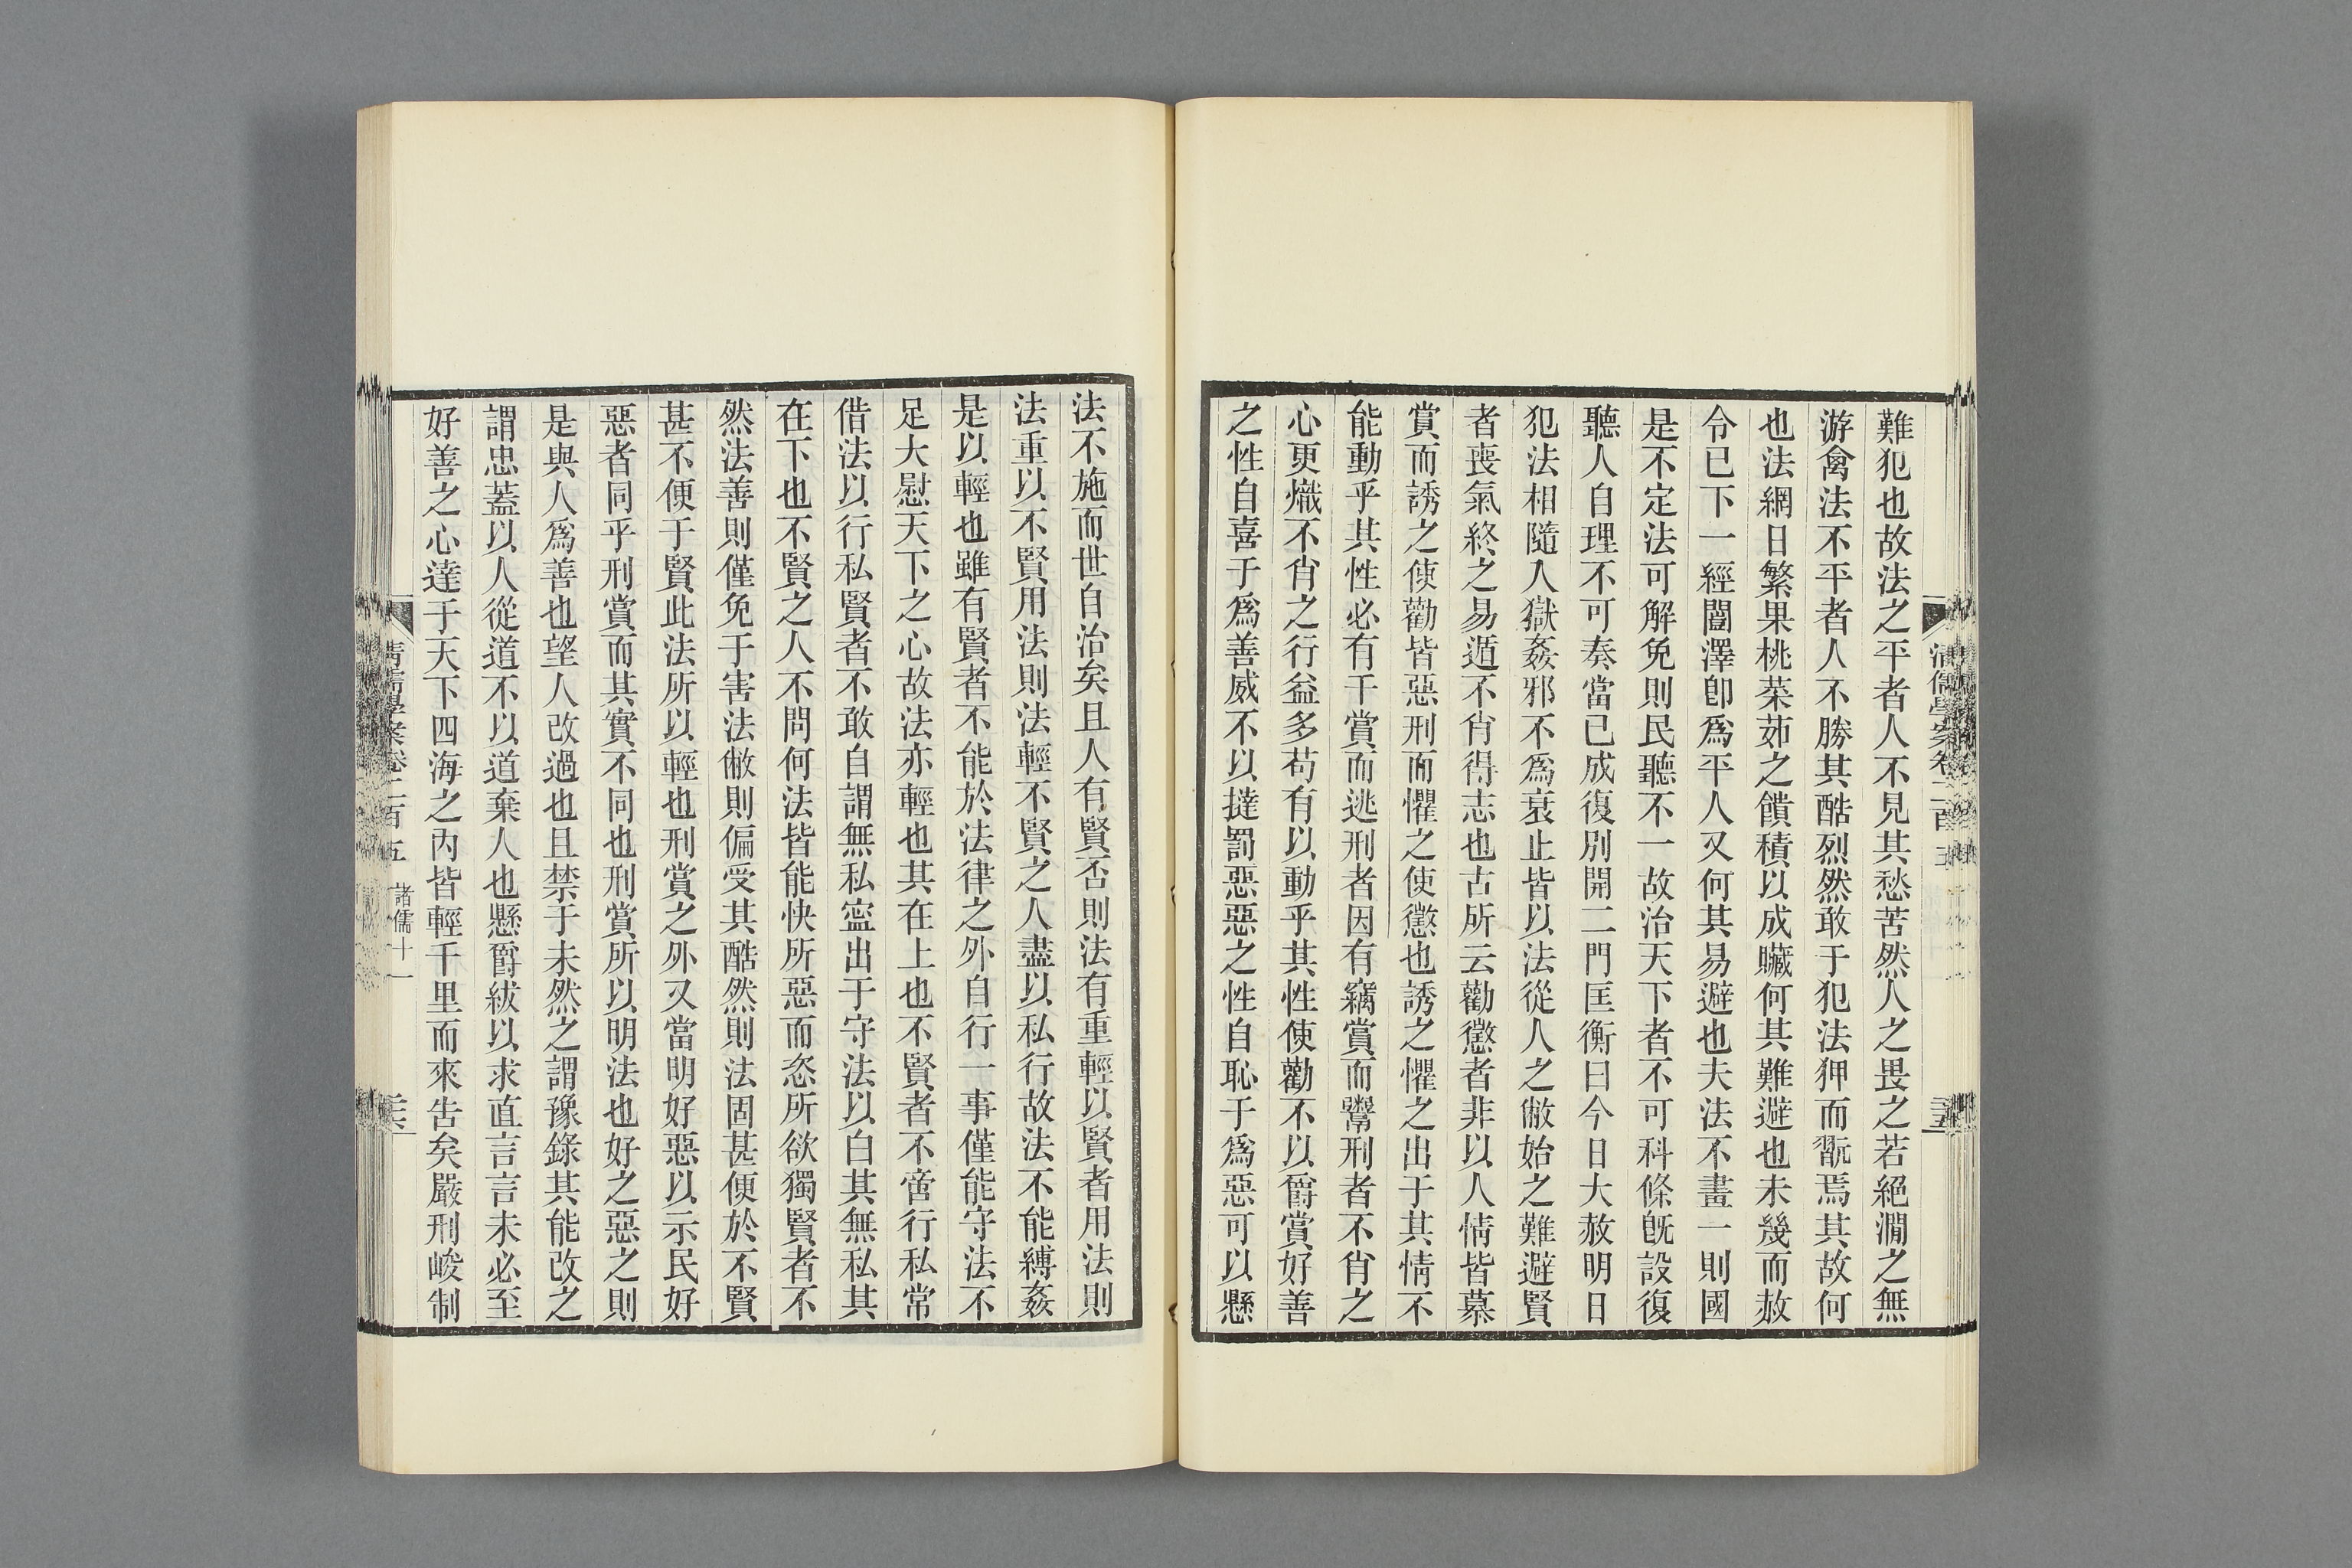 難犯也故法之平者人不見其愁苦然人之畏之若絕澗之無
游禽法不平者人不勝其酷烈然敢于犯法狎而翫焉其故何
也法網日繁果桃菜茹之饋積以成贓何其難避也未幾而赦
令已下一經闓澤卽爲平人又何其易避也夫法不畫一則國
是不定法可解免則民聽不一故治天下者不可科條旣設復
聽人自理不可奏當已成復別開二門匡衡曰今日大赦明日
犯法相隨入獄姦邪不爲衰止皆以法從人之敝始之難避賢
者喪氣終之易遁不肖得志也古所云勸懲者非以人情皆慕
賞而誘之使勸皆惡刑而懼之使懲也誘之懼之出于其情不
能動乎其性必有干賞而逃刑者因有竊賞而鬻刑者不肖之
心更熾不肖之行益多苟有以動乎其性使勸不以爵賞好善
之性自喜于爲善威不以撻罰惡惡之性自恥于爲惡可以懸
法不施而世自治矣且人有賢否則法有重輕以賢者用法則
法重以不賢用法則法輕不賢之人盡以私行故法不能縛姦
是以輕也雖有賢者不能於法律之外自行一事僅能守法不
足大慰天下之心故法亦輕也其在上也不賢者不啻行私常
借法以行私賢者不敢自謂無私寍出于守法以白其無私其
在下也不賢之人不問何法皆能快所惡而恣所欲獨賢者不
然法善則僅免于害法敝則偏受其酷然則法固甚便於不賢
甚不便于賢此法所以輕也刑賞之外又當明好惡以示民好
惡者同乎刑賞而其實不同也刑賞所以明法也好之惡之則
是與人爲善也望人改過也且禁于未然之謂豫錄其能改之
謂忠蓋以人從道不以道棄人也懸爵紱以求直言言未必至
好善之心達于天下四海之內皆輕千里而來告矣嚴刑峻制
清儒學案卷二百五 諸儒十一